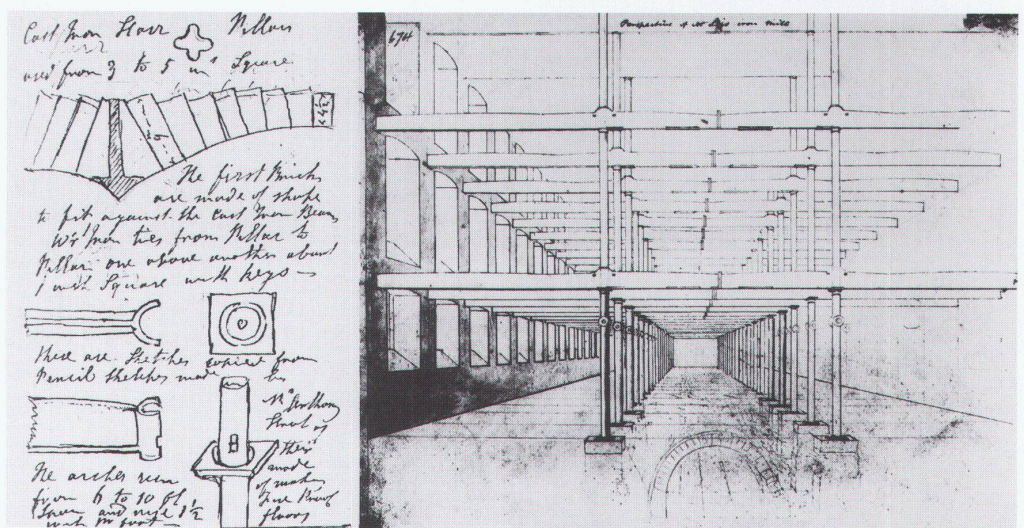 Cast Iron Starr Pillars
used from 3 to 5 ins Square
The first Bricks
are made of shape
to fit against the Cast Iron Beams
Wr't Iron ties from Pillar to
Pillar one above another about
1 inch Square with keys —
these are Sketches copied from
Pencil Sketches made by
their
mode
of making
Fire Proof
floors
The arches run
from 6 to 10 ft
Span and rise 1½
674
Perspective of iron mill